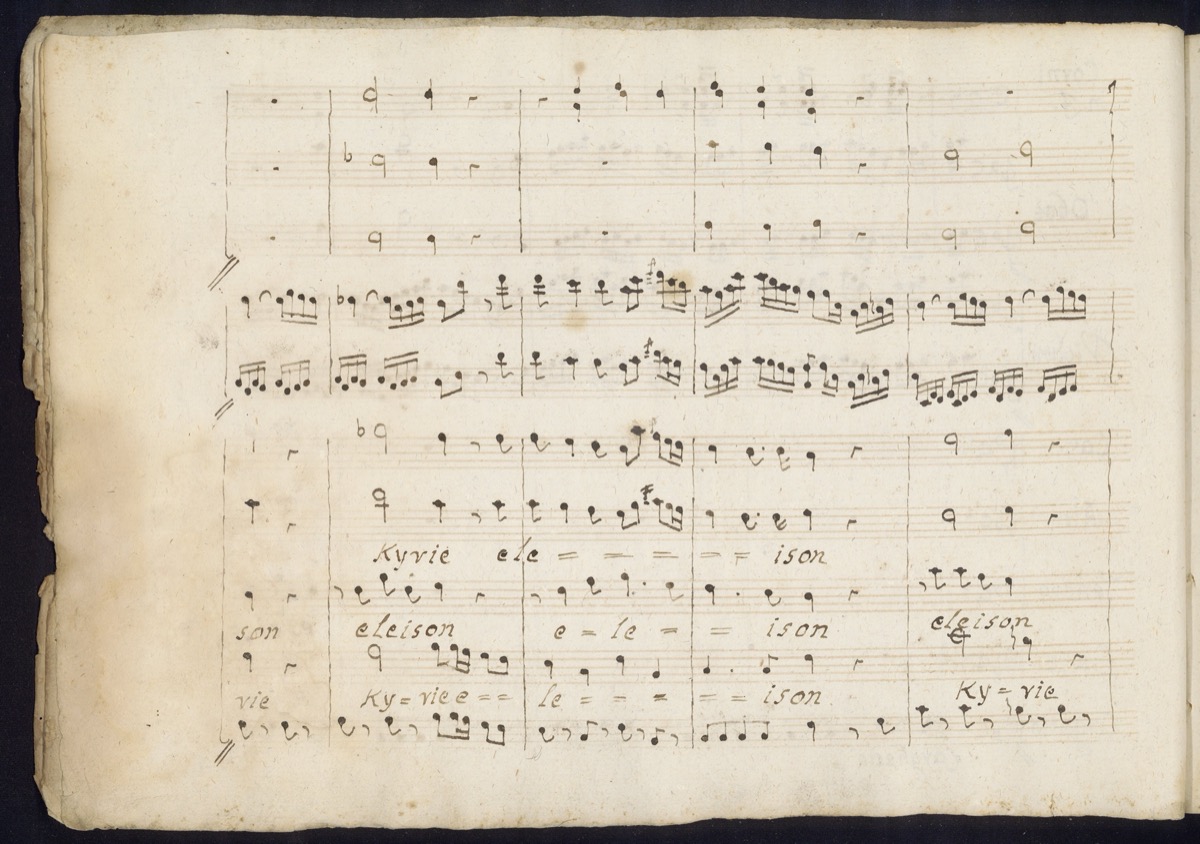 Kyrie ele = = = = = ison
son eleison e = le = = ison eleison
vie Ky = rie e = = le = = = = = ison Ky = rie